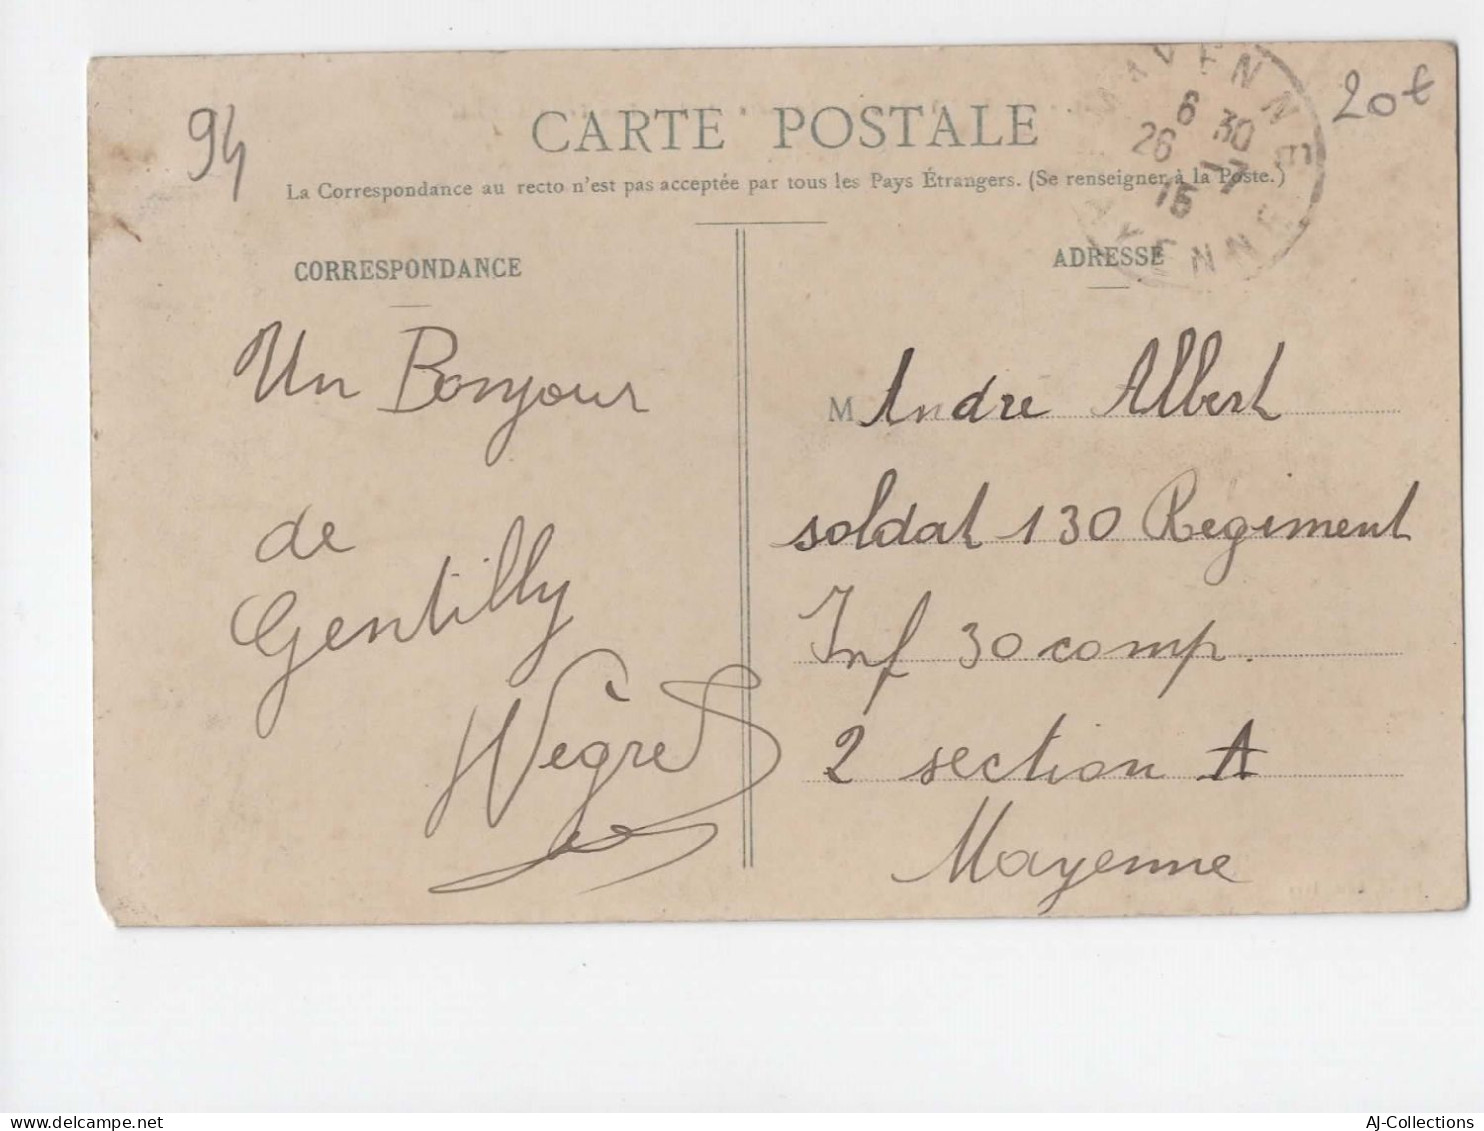 94
20€
CARTE POSTALE
La Correspondance au recto n'est pas acceptée par tous les Pays Étrangers. (Se renseigner à la Poste.)
MAYENNE
6 30
26 -7
MAYENNE
CORRESPONDANCE
Un Bonjour
de
Gentilly
Nègre
ADRESSE
M Andre Albert
soldat 130 Regiment
Inf 30 comp.
2 section A
Mayenne
AJ-Collections